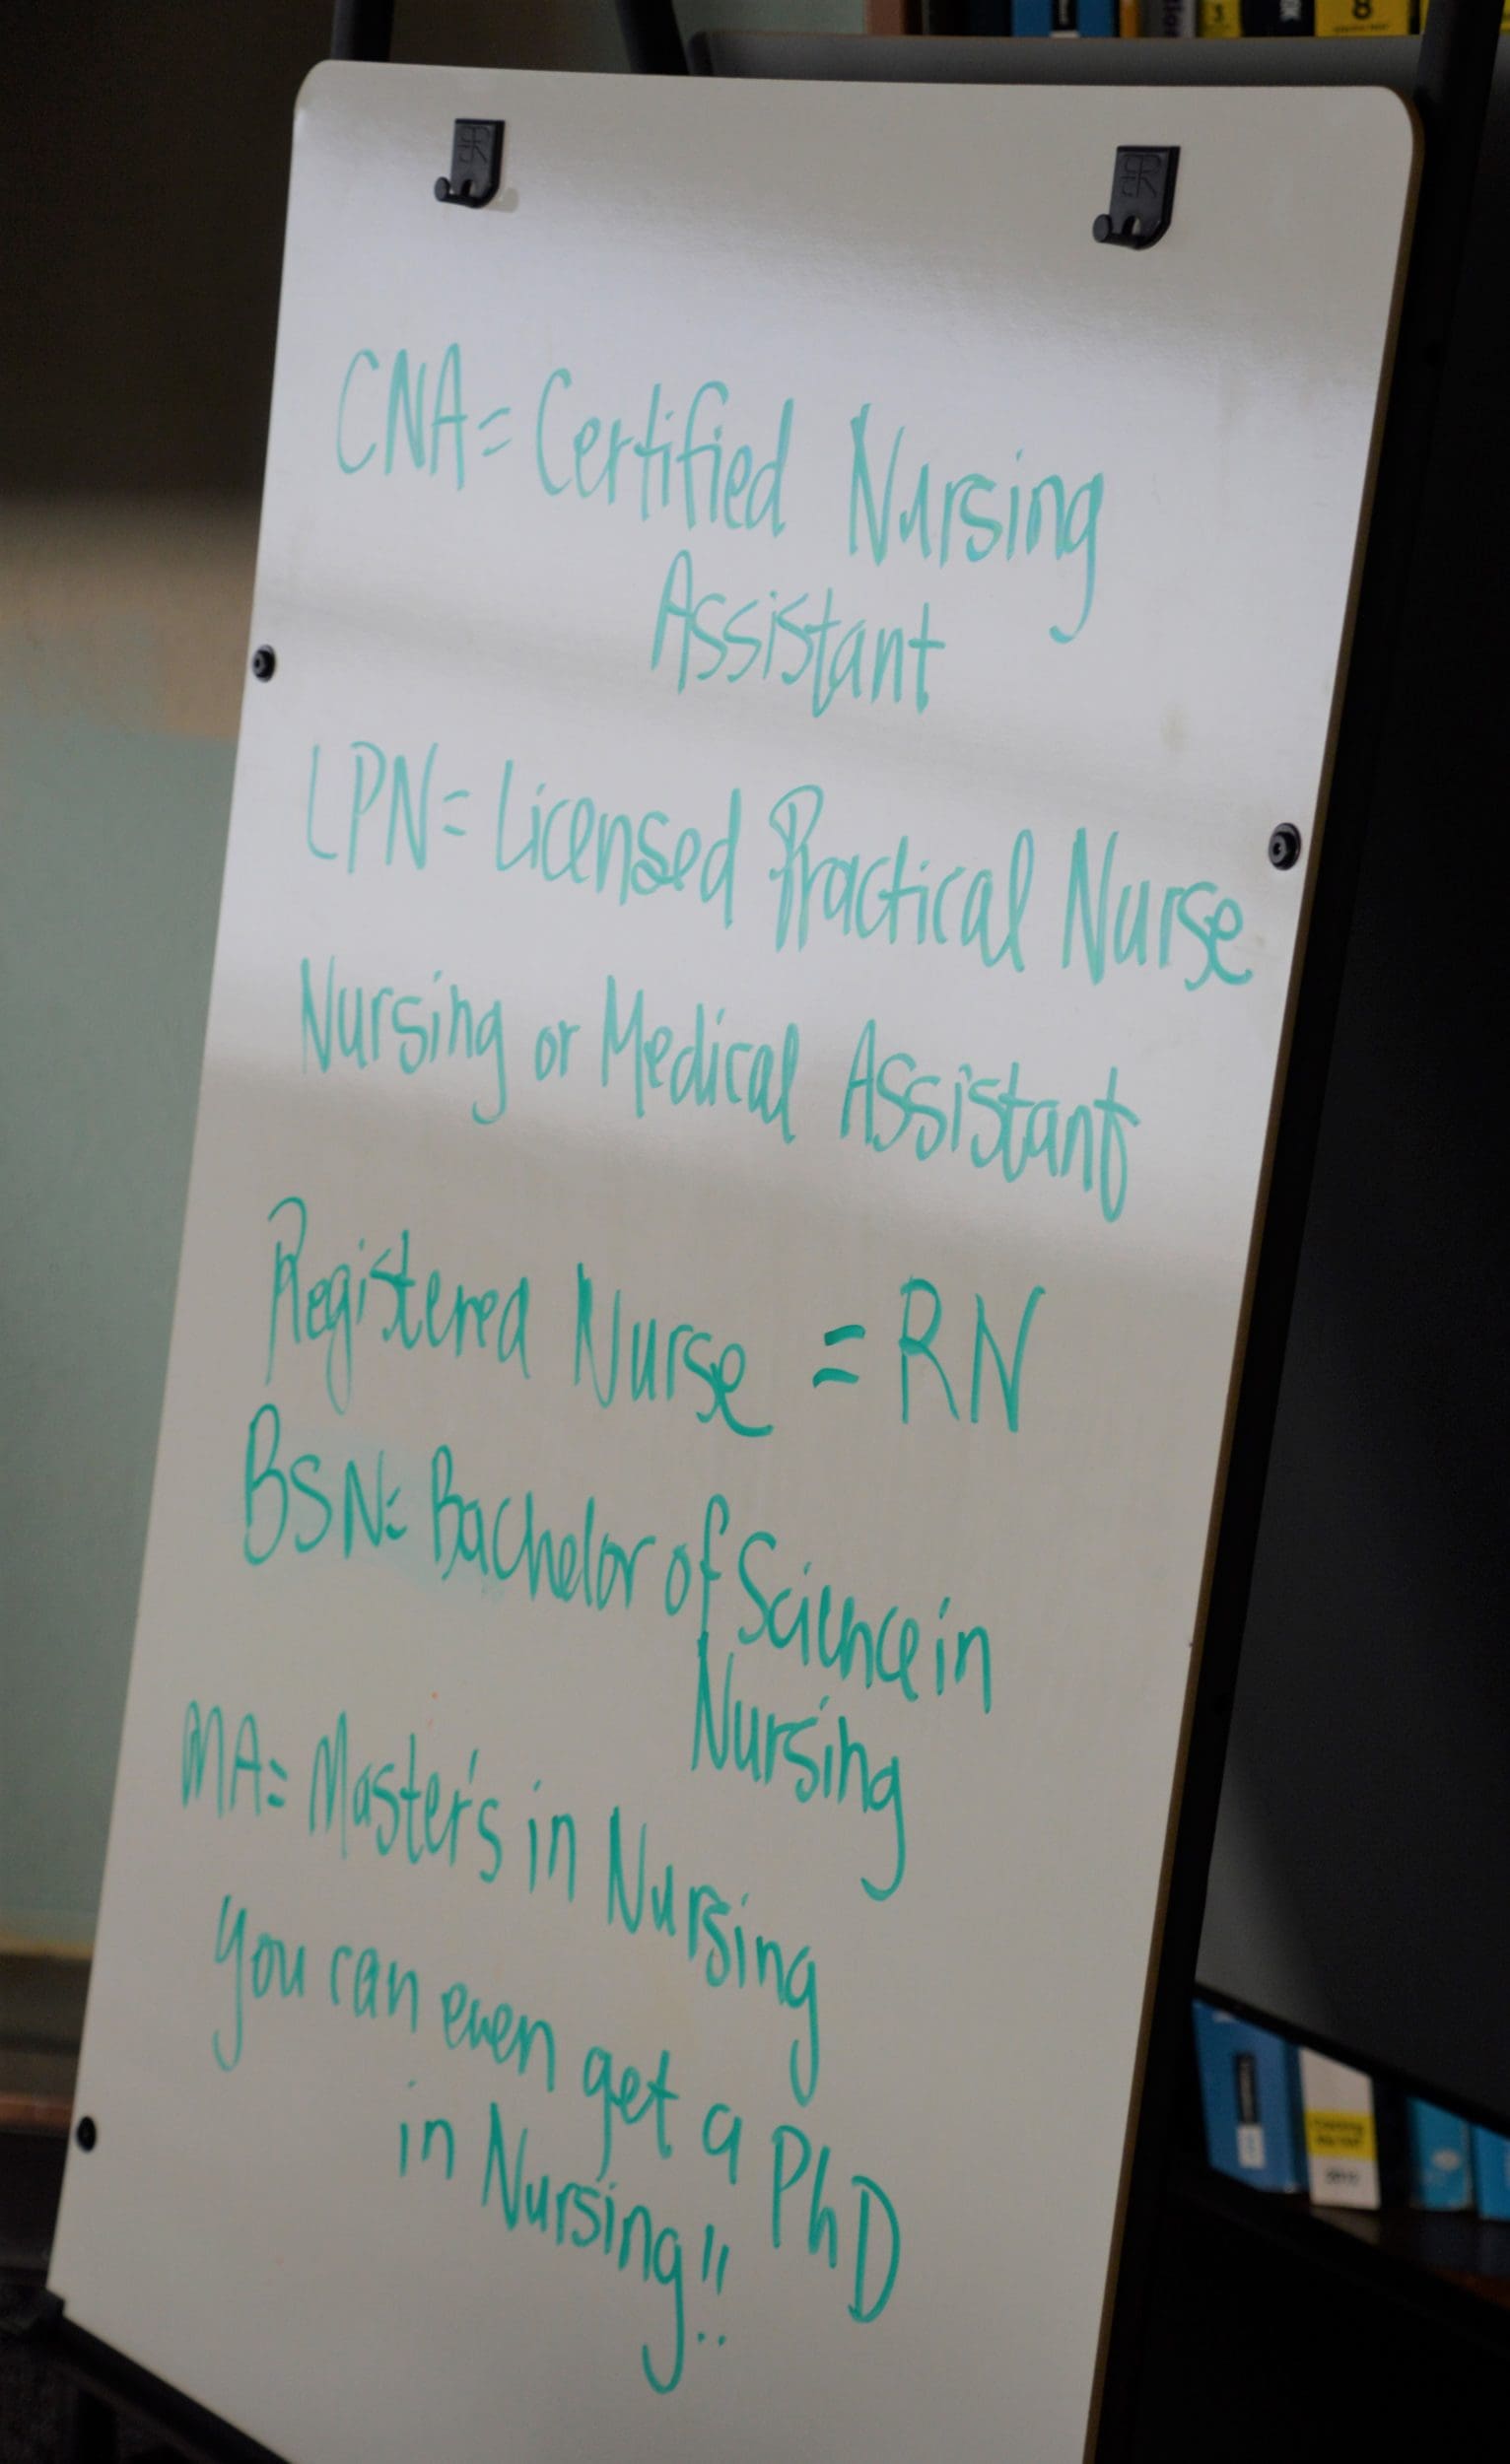 CNA= Certified Nursing
Assistant
LPN= Licensed Practical Nurse
Nursing or Medical Assistant
Registered Nurse = RN
BSN= Bachelor of Science in
Nursing
MA= Master's in Nursing
You can even get a PhD
in Nursing!!
3
8